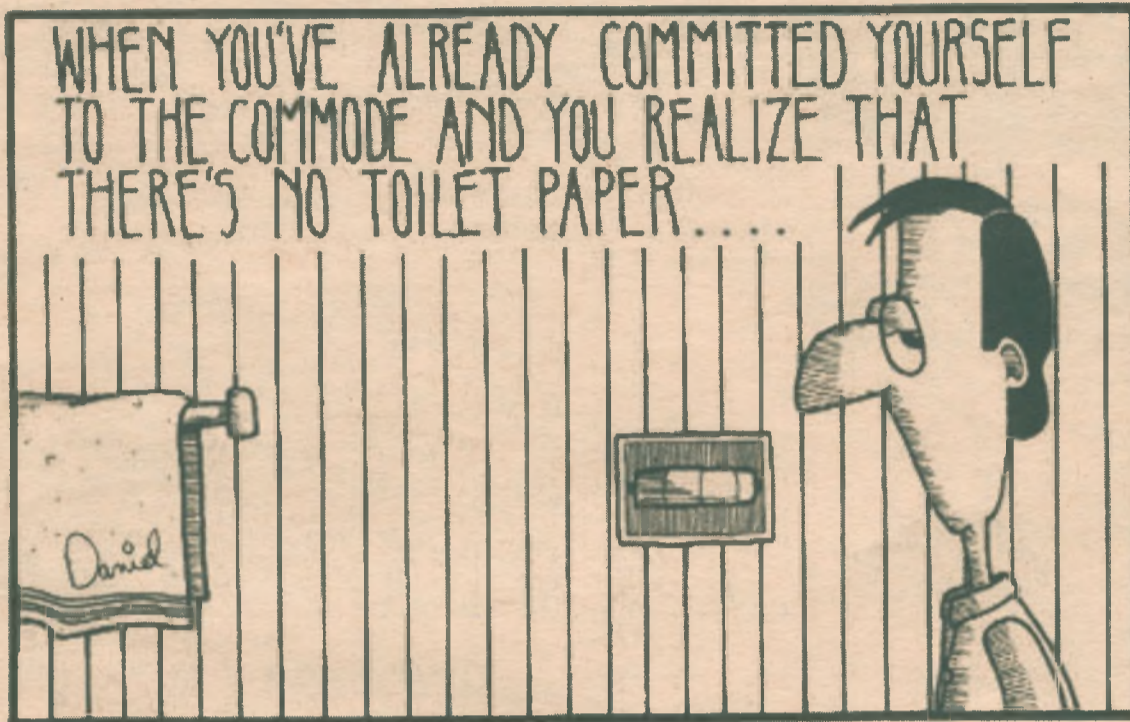 WHEN YOU'VE ALREADY COMMITTED YOURSELF
TO THE COMMODE AND YOU REALIZE THAT
THERE'S NO TOILET PAPER....
Daniel